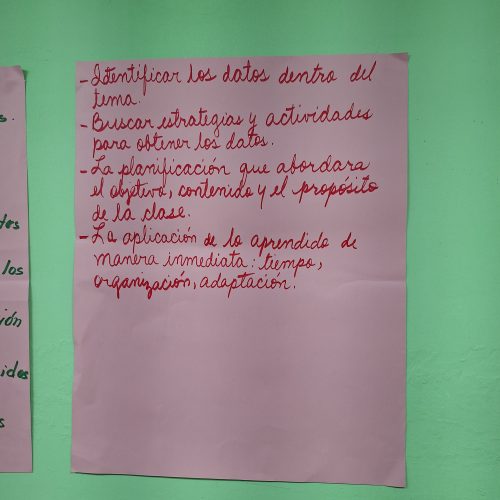 - Identificar los datos dentro del
tema.
- Buscar estrategias y actividades
para obtener los datos.
- La planificación que abordara
el objetivo, contenido y el propósito
de la clase.
- La aplicación de lo aprendido de
manera inmediata: tiempo,
organización, adaptación.
los